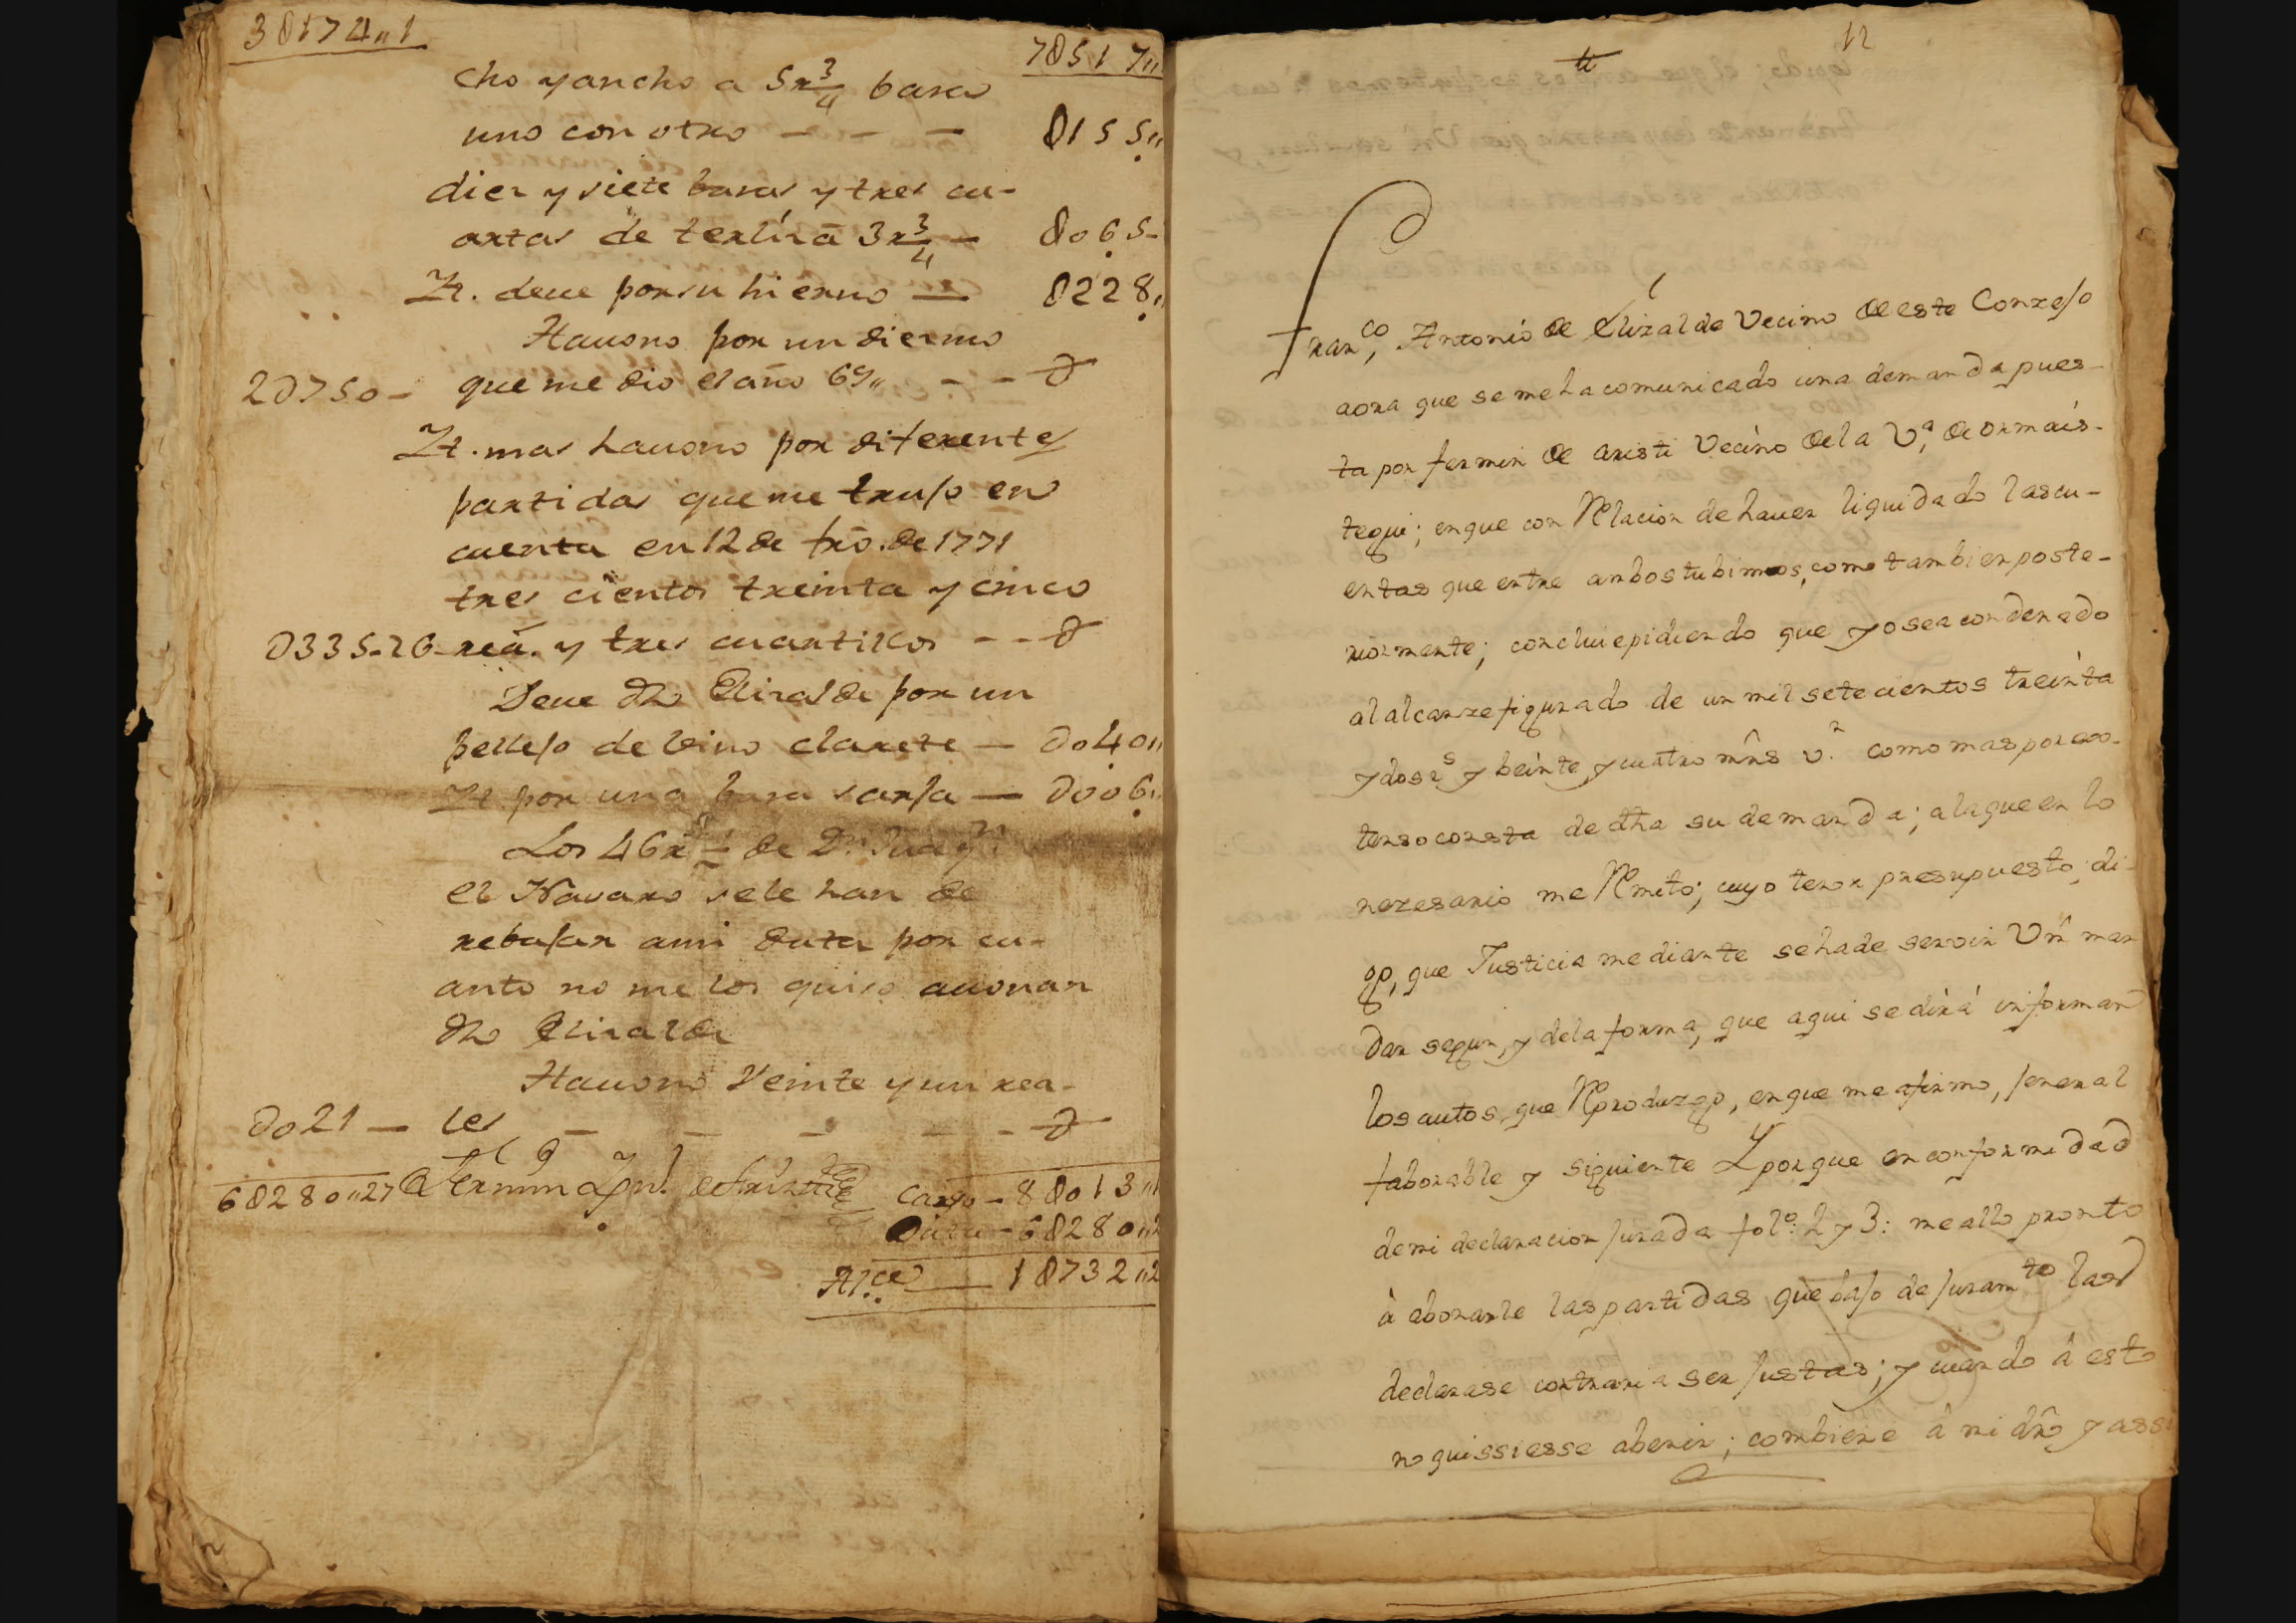 3 0174 „ 1
7 0517 „
cho y ancho a 5 r 3/4 bara
uno con otro — — — 0155 „
diez y siete baras y tres cu-
artas de terliz a 3 r 3/4 — 0065 -
Yt. deue por su hierno — 0228 „
Hauono por un diezmo
2 0750 - que me dio el año 69 „ - - 0
Yt. mas hauono por diferentes
partidas que me trujo en
cuenta en 12 de fro. de 1771
tres cientos treinta y cinco
0335-26 - rea. y tres cuartillos - - 0
Deue dho Elizalde por un
pellejo de vino clarete — 0040 „
Yt por una bara sarja — 0006 „
Los 46 r de Dn
el Navarro se le han de
rebajar a mi data por cu-
anto no me los quiso auonar
dho Elizalde
Hauono Veinte y un rea-
0021 — les — — — — - 0
6 0280 „ 27 Fermin Ign. de Aristi
Cargo - 8 0013 „
Data - 6 0280 „
Alce — 1 0732 „ 2
12
tt
Franco, Antonio de Elizalde Vecino de este Conzejo
aora que se me ha comunicado una demanda pues-
ta por fermin de Aristi Vecino de la Va. de Ormáis-
tegui; en que con Relacion de hauer liquidado las cu-
entas que entre ambos tubimos, como tambien poste-
riormente; concluie pidiendo que yo sea condenado
al alcanze figurado de un mil setecientos treinta
y dos rs y beinte y cuatro mrs vn. como mas por ex-
tenso consta de dha su demanda; a la que en lo
nezesario me Rmito; cuyo tenor presupuesto, di-
go, que Justicia mediante se hade servir Vm man
dar segun, y de la forma, que aqui se dirá informan
los autos, que Rproduzgo, en que me afirmo, jeneral
faborable y siguiente Y porque en conformidad
de mi declaracion jurada folo: 2 y 3: me allo pronto
à abonarle las partidas que bajo de juramto las
declarase contraria ser justas; y cuando â esto
no quissiesse abenir; combiene â mi dro y assi